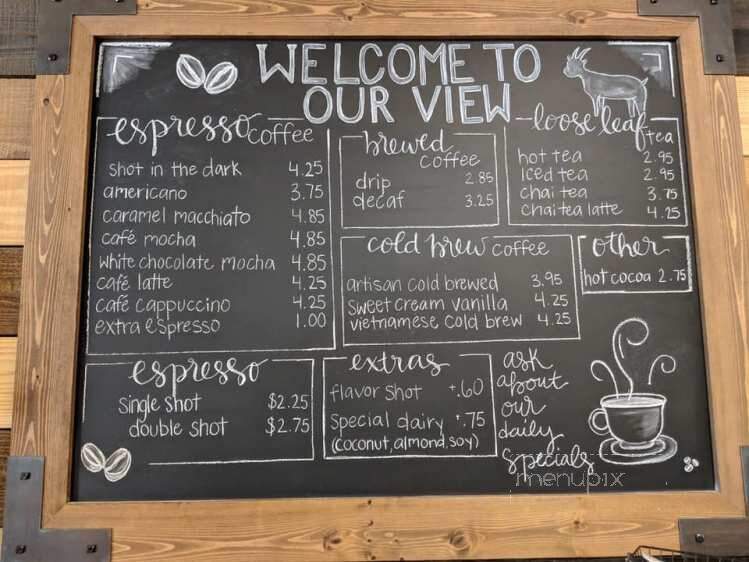 WELCOME TO
OUR VIEW
espresso coffee
shot in the dark 4.25
americano 3.75
caramel macchiato 4.85
café mocha 4.85
white chocolate mocha 4.85
café latte 4.25
café cappuccino 4.25
extra espresso 1.00
brewed
coffee
drip 2.85
decaf 3.25
loose leaf tea
hot tea 2.95
iced tea 2.95
chai tea 3.75
chai tea latte 4.25
cold brew coffee
artisan cold brewed 3.95
sweet cream vanilla 4.25
vietnamese cold brew 4.25
other
hot cocoa 2.75
espresso
single shot $2.25
double shot $2.75
extras
flavor shot +.60
special dairy +.75
(coconut, almond, soy)
ask
about
our
daily
specials
menupix